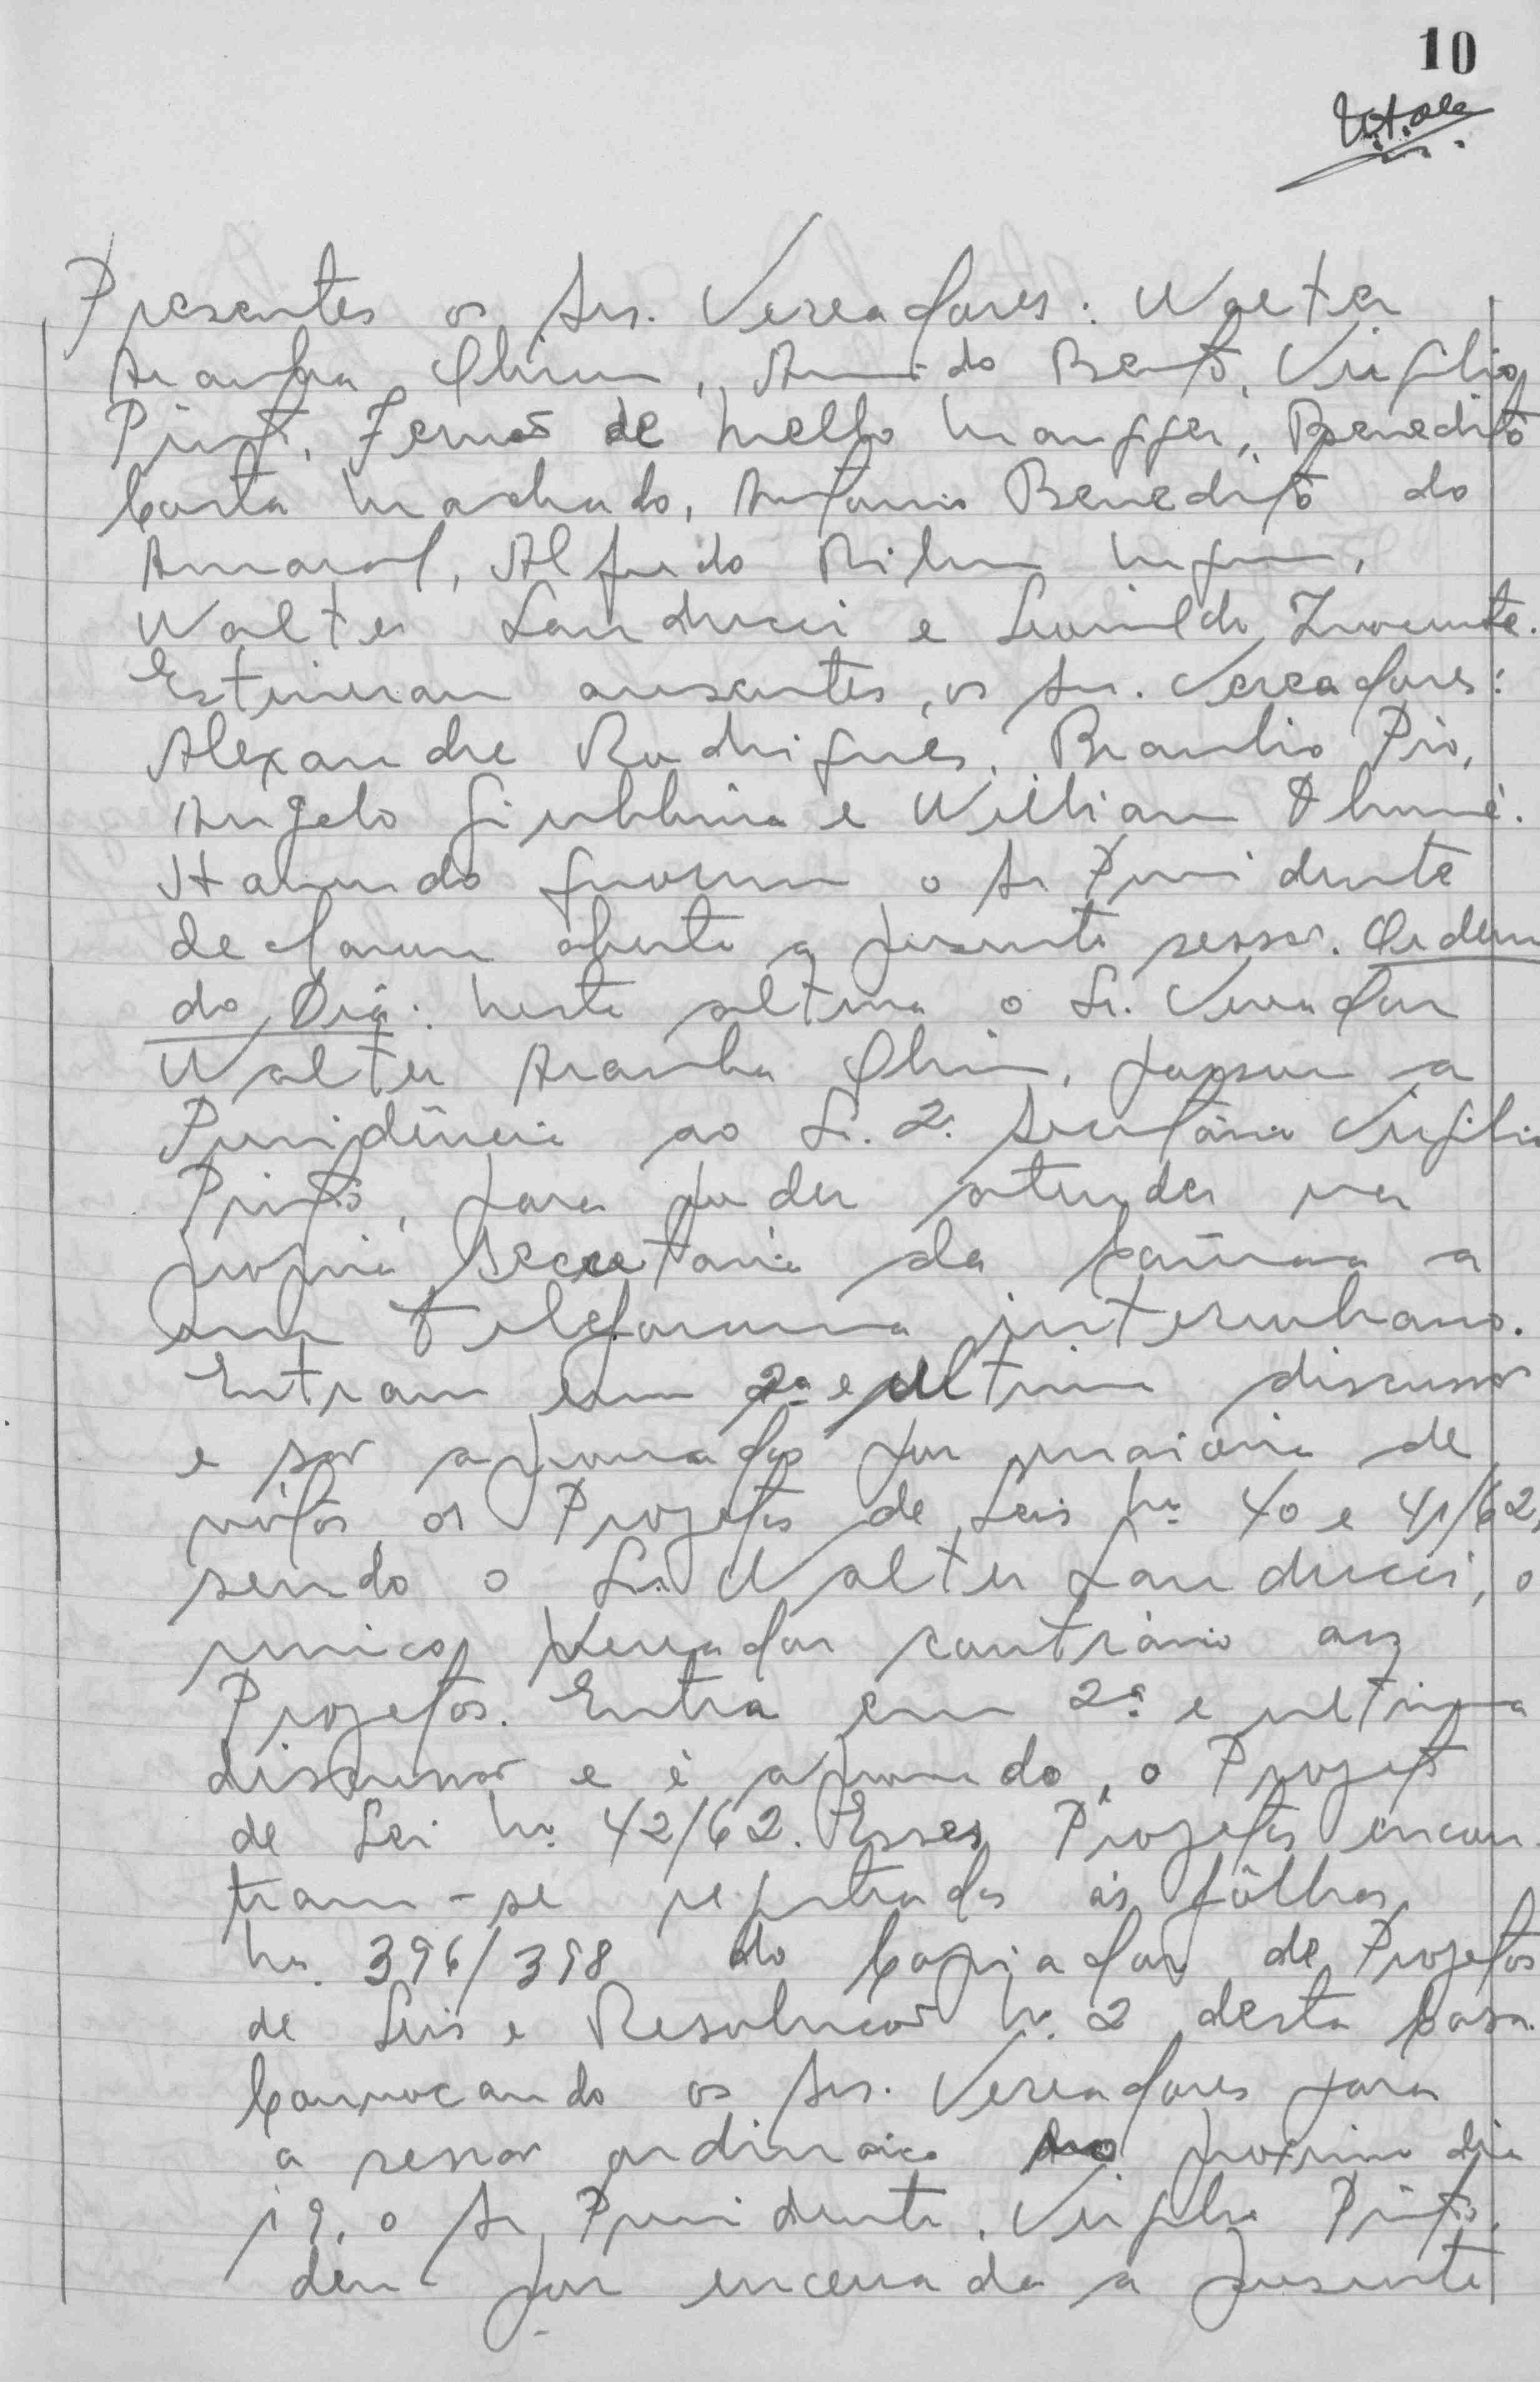 10
Presentes os Srs. Vereadores: Walter
Aranha Chin, Armindo Bentô, Virgilio
Pintô, Fernão de Mello Manggei, Benedito
Costa Machado, Antonio Benedito do
Amaral, Alfredo
Walter Landucci e Leonildo Inocente.
Estiveram ausentes, os Srs. Vereadores:
Alexandre Rodrigues, Braulio Pio,
Angelo Giubbina e William
Havendo quorum o Sr Presidente
declarou aberta a presente sessão. Ordem
do Dia: Nesta altura o Sr. Vereador
Walter Aranha Chin, passou a
Presidência ao Sr. 2º Secretário Virgilio
Pintô, para poder atender na
propria Secretaria da Câmara a
um telefonema interurbano.
Entram em 2ª e ultima discussão
e são aprovados por maioria de
vótos os Projetos de Leis Nº 40 e 41/62,
sendo o Sr. Walter Landucci, o
unico Vereador contrário aos
Projetos. Entra em 2ª e ultima
discussão e é aprovado, o Projeto
de Lei Nº 42/62. Esses Projetos encon-
tram-se registrados às fôlhas
Nº 396/398 do Copiador de Projetos
de Leis e Resolução Nº 2 desta Casa.
Convocando os Srs. Vereadores para
a sessão ordinária do proximo dia
19, o Sr Presidente, Virgilio Pintô,
deu por encerrada a presente